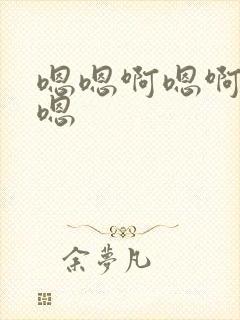 嗯嗯啊嗯啊
嗯
余梦凡